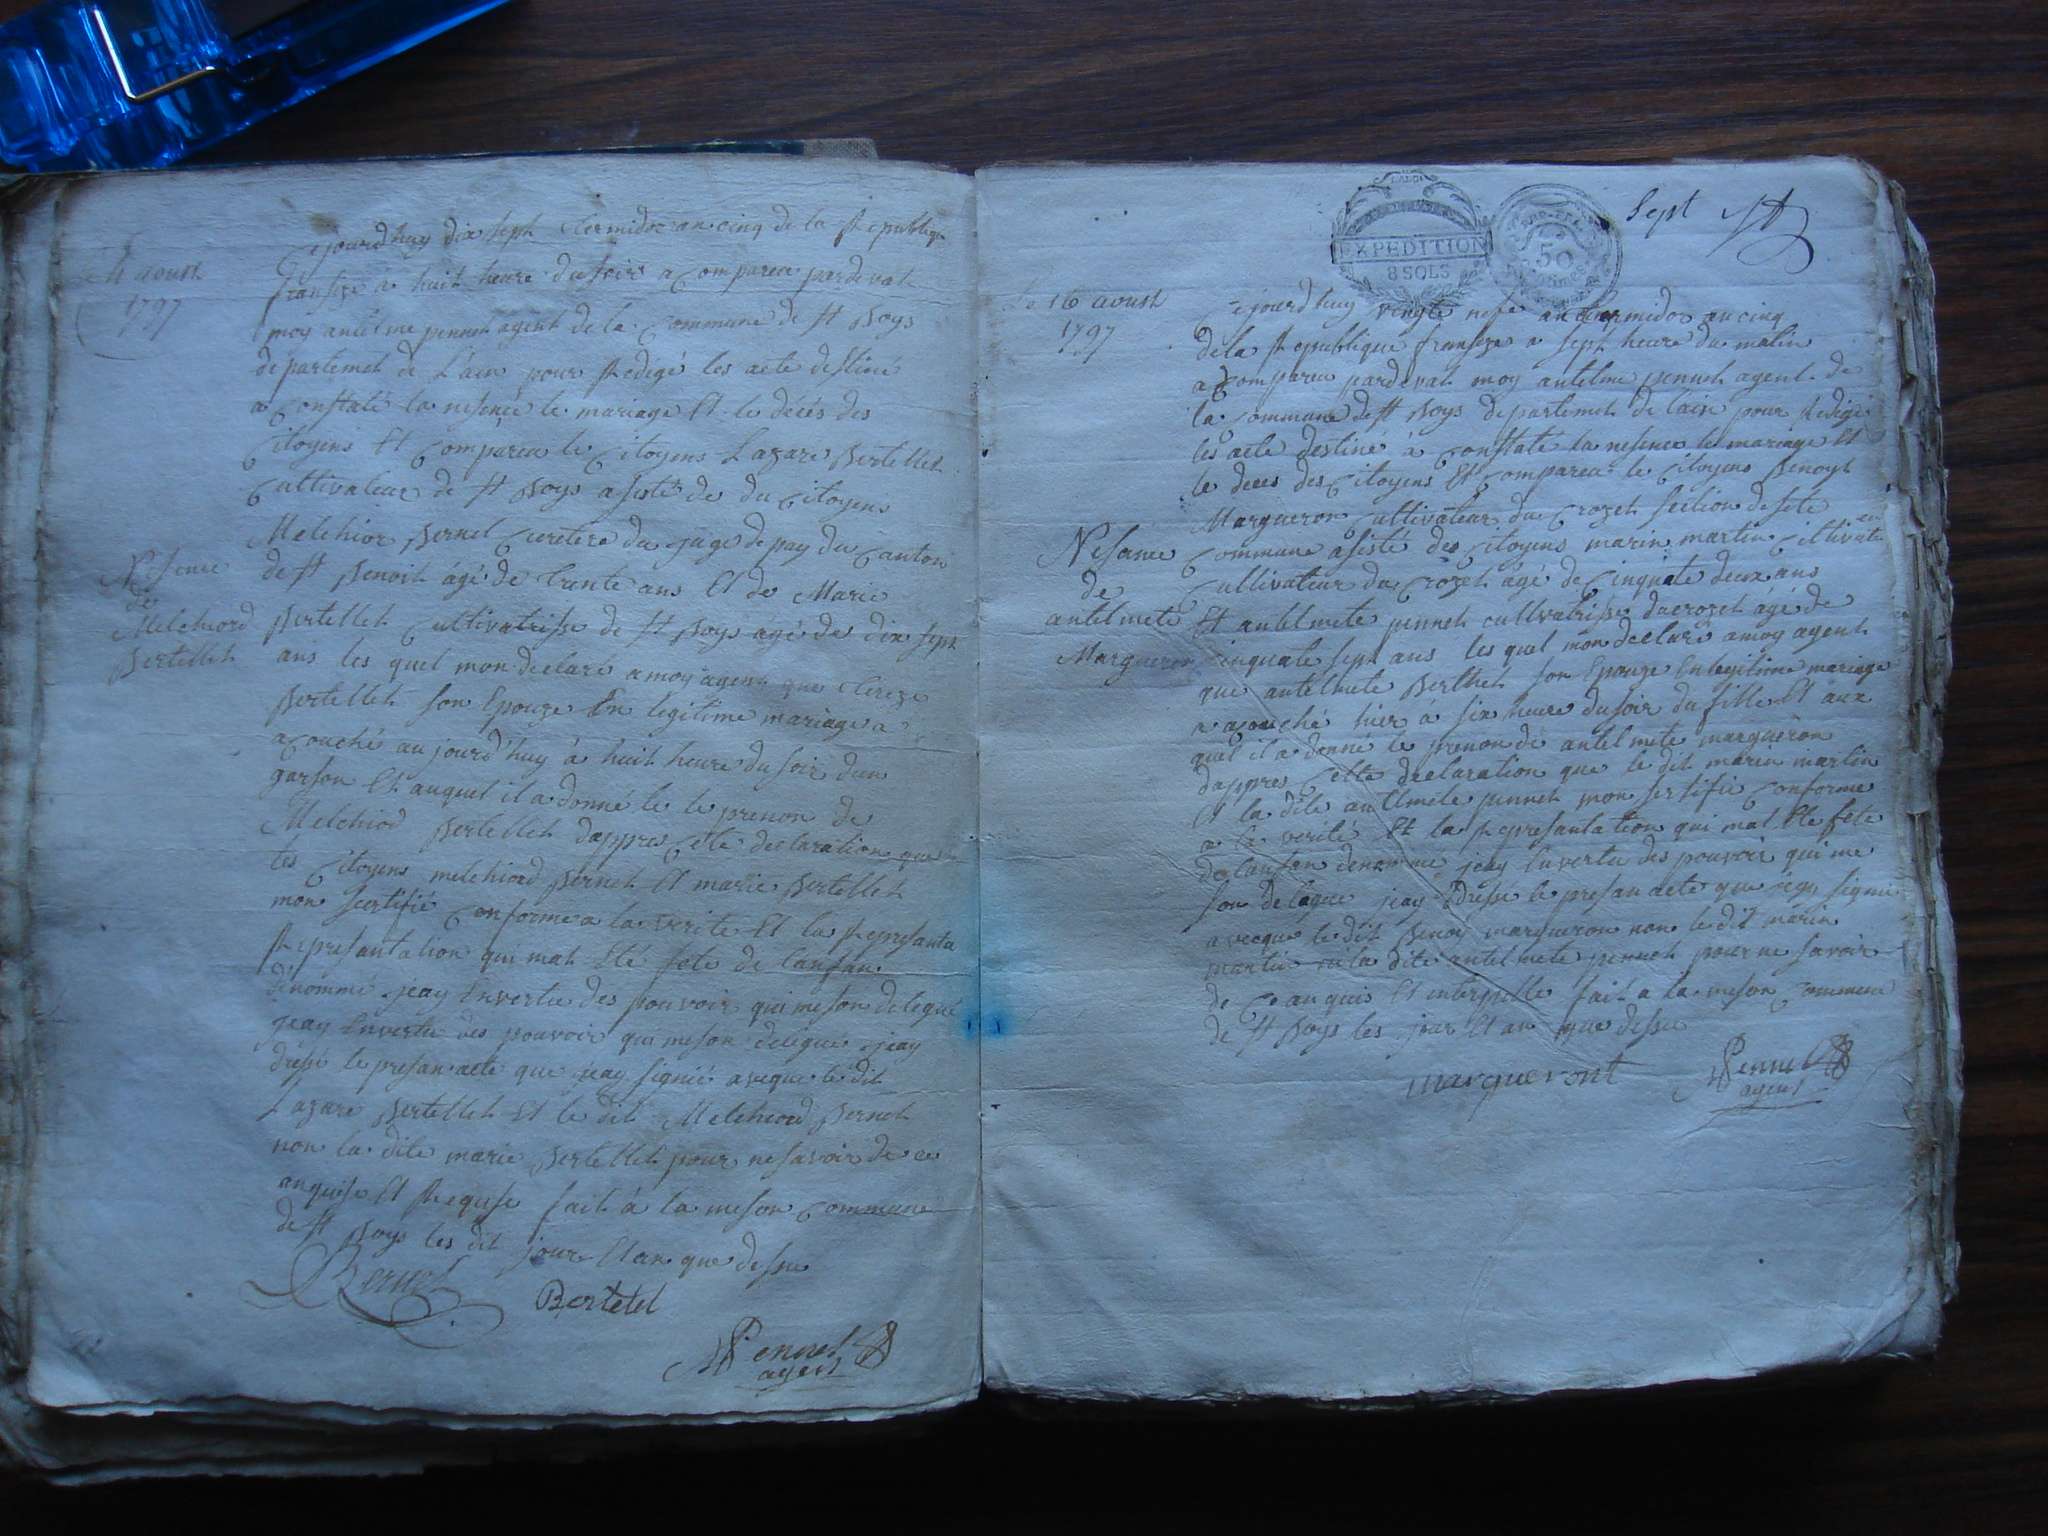 4 aoust
1797
Cejourd'huy dix sept termidor an cinq de la Republique
franseze à huit heure du soir a Compareu pardevat
moy antelme pennet agent de la Commune de St Boys
département de L'ain pour Redigé les acte destine
a Constaté la nesence le mariage Et le décés des
Citoyens Et Compareu le Citoyens Lazare Bertellet
Cultivateur de St Boys asisté de du Citoyens
Melchior Bernet Cecretere du juge de pay du Canton
de St Benoit âgé de trente ans Et de Marie
Nesence
de
Melchiord
Bertellet
Bertellet Cultivatrisse de St Boys agé de dix sept
ans les quel mon declaré a moy agent que tereze
Bertellet son Epouze En legitime mariage a
acouché aujourd'huy à huit heure du soir dun
garson Et auquel il a donné le le prenon de
Melchiod Bertellet dappres Cete declaration que
les Citoyens melchiord Bernet Et marie Bertellet
mon sertifié Conforme a la verite Et la Represanta
Represantation qui mat Eté fete de lanfan
dénommé jeay Envertu des pouvoir qui me son delegué
jeay Envertu des pouvoir qui me son delegué jeay
dressé le presan acte que jeay signié aveque le dit
Lazare Bertellet Et le dit Melchiord Bernet
non la dite marie Bertellet pour ne savoir de ce
anquise Et Requise fait à la meson Commune
de St Boys les dit jour Et an que dessu
Bernet
Bertetel
Pennet
agent
EXPEDITION
8 SOLS
50
Sept
Le 16 aoust
1797
Cejourd'huy vingte nefe termidor an cinq
de la Republique franseze a sept heure du matin
a Compareu pardevat moy antelme pennet agent de
la Commune de St Boys departemet de lain pour Redigé
les acte destine à Constaté la nesence le mariage Et
le deces des Citoyens Et Compareu le Citoyens Benoyt
Margueron Cultivateur du Crozet section de sete
Nesance
de
antelmete
Margueron
Commune asisté des Citoyens marin martin
Cultivateur du Crozet âgé de Cinquate deux ans
Et antelmete pennet cultivatrisse du crozet âgé de
Cinquate sept ans les quel mon declaré a moy agent
que antelmete Berthet son Epouze En legitime mariage
a acouché hier à six heure du soir du fille Et aux
quel il a donné le prenon de antelmete margueron
dappres Cette declaration que le dit marin martin
Et la dite antelmete pennet mon sertifié Conforme
a la verité Et la Represantation qui mat Ete fete
de lanfan denomme jeay Envertu des pouvoir qui me
son delegue jeay Dressé le presan acte que jeay signié
aveque le dit Benoy margueron non le dit marin
martin ni la dite antelmete pennet pour ne savoir
de Ce anquis Et interpelle fait a la meson Commune
de St Boys les jour Et an que dessu
marqueront
Pennet
agent